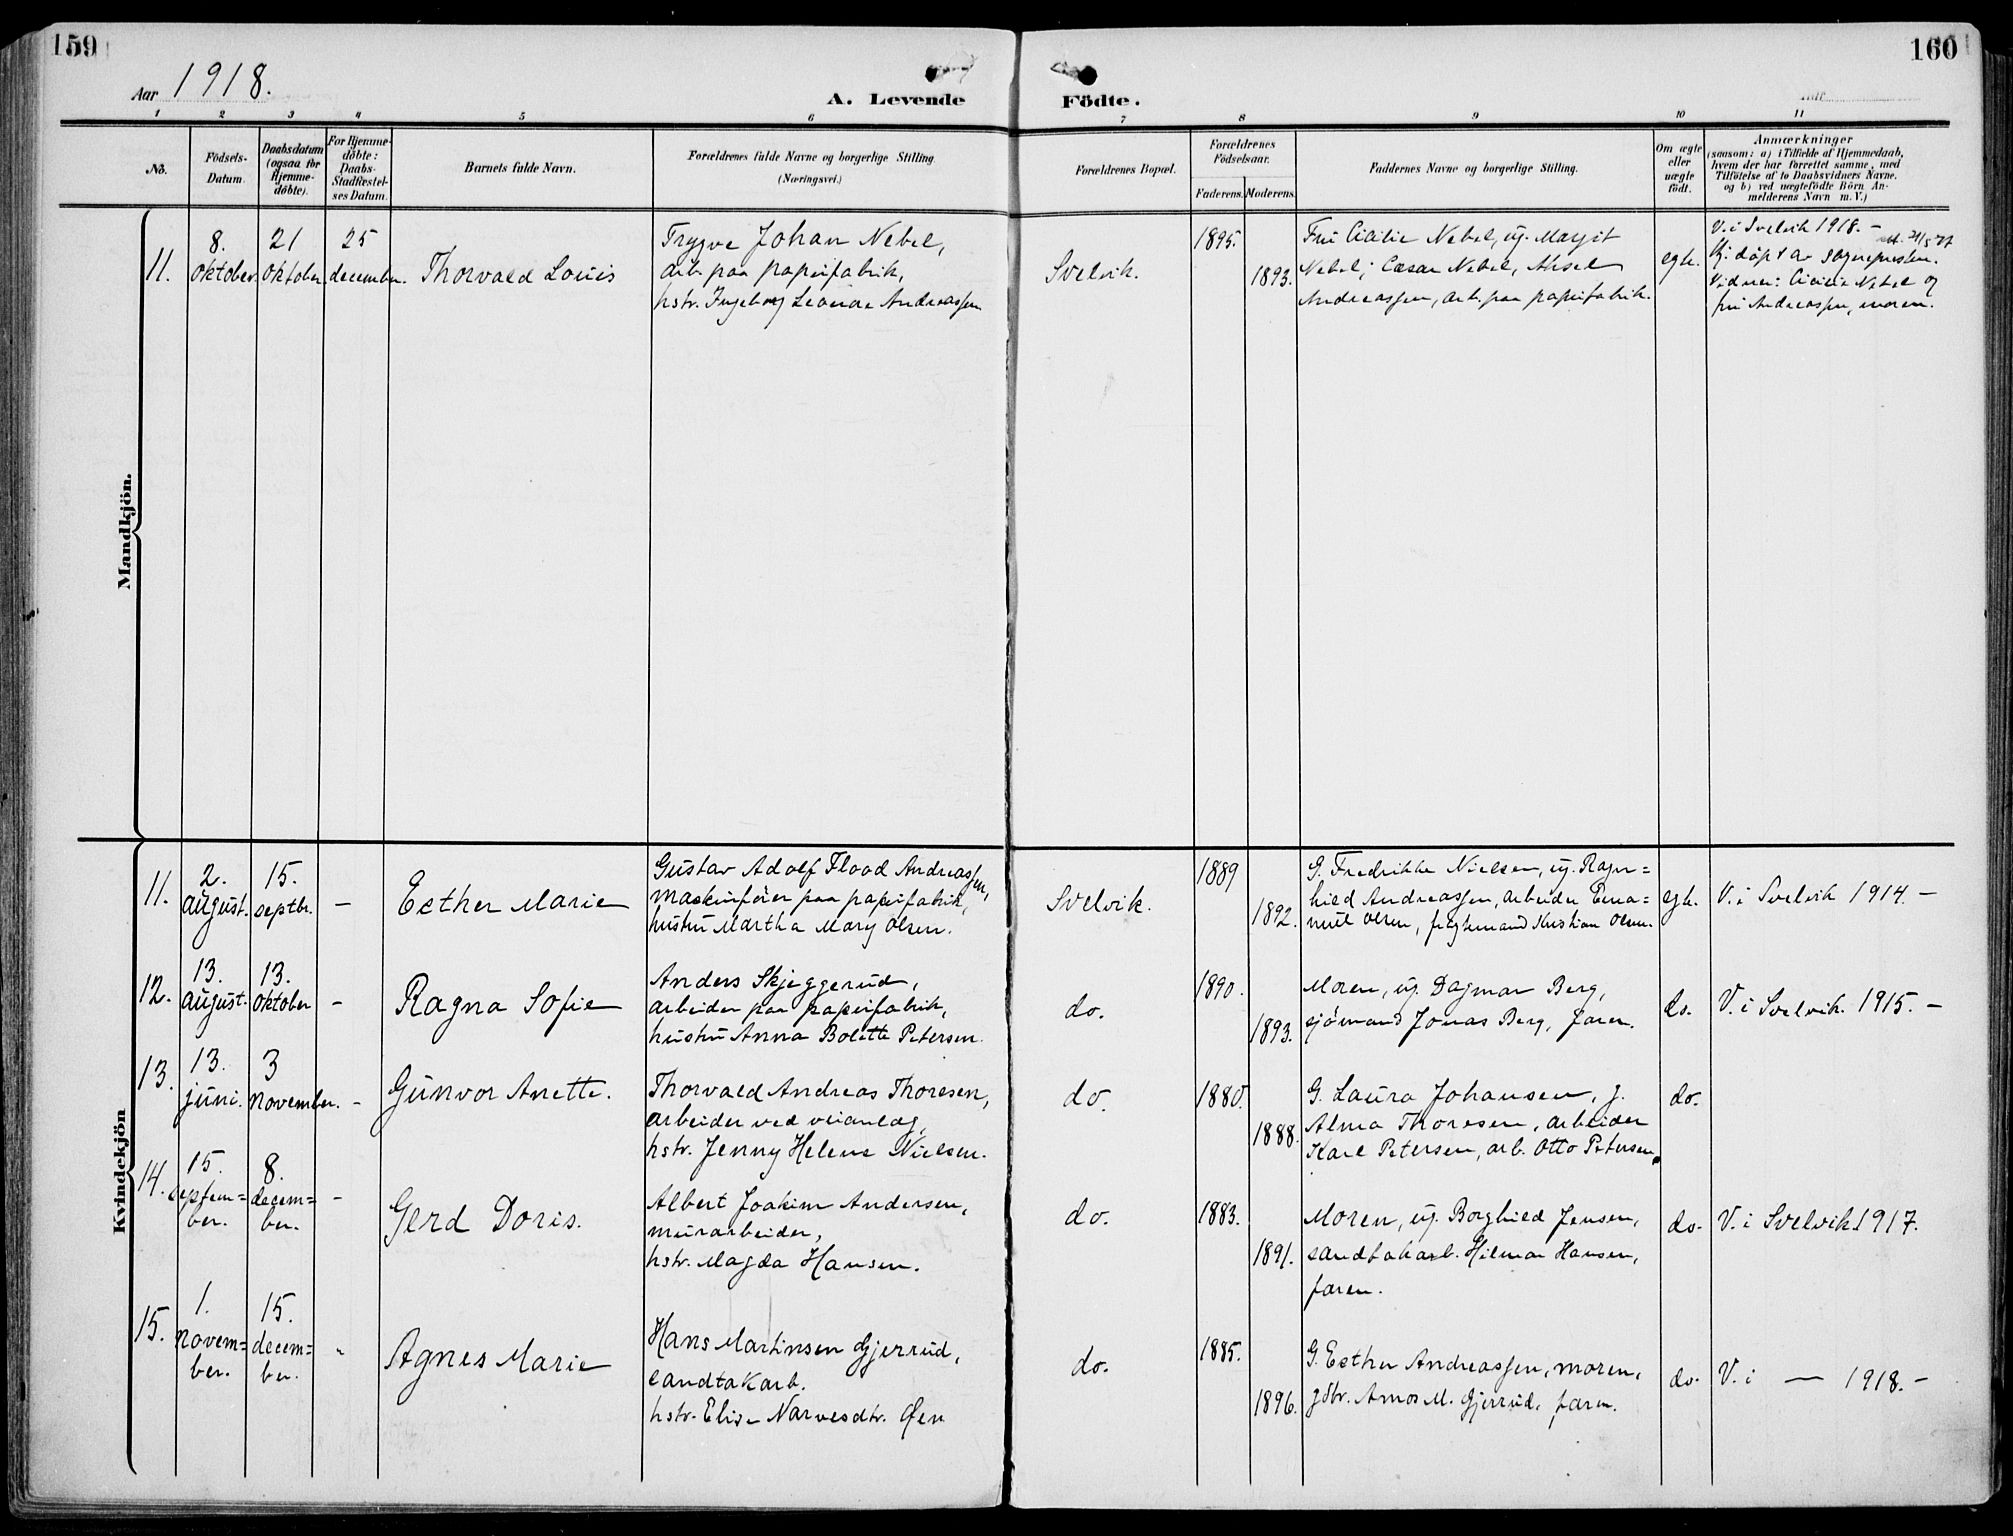 159
160
Aar 1918.
A. Levende Födte.
1 2 3 4 5 6 7 8 9 10 11
No.
Födsels-
Datum.
Daabsdatum
(ogsaa for
Hjemme-
döbte).
For Hjemme-
döbte:
Daabs-
Stadfæstel-
ses Datum.
Barnets fulde Navn.
Forældrenes fulde Navne og borgerlige Stilling
(Næringsvei.)
Forældrenes Bopæl.
Forældrenes
Födselsaar.
Faderens. Moderens.
Faddernes Navne og borgerlige Stilling.
Om ægte
eller
uægte
födt.
Anmærkninger
(saasom: a) i Tilfælde af Hjemmedaab,
hvem der har forrettet samme, med
Tilföielse af to Daabsvidners Navne.
og b) ved uægtefödte Börn An-
melderens Navn m. V.)
Mandkjön.
11.
8.
oktober.
21
oktober.
25
december.
Thorvald Louis
Trygve Johan Nebel,
arb. paa papirfabrik,
hstr. Ingeborg Leonore Andreassen
Svelvik.
1895.
1893.
Fru Cicilie Nebel, ug. Margit
Nebel; Cæsar Nebel, Aksel
Andreassen, arb. paa papirfabrik.
egte.
V. i Svelvik 1918. –
Hj. döpt av sognepresten.
Vidner: Cicilie Nebel og
fru Andreassen, moren.
Kvindekjön
11.
2.
august.
15.
septbr.
–
Esther Marie
Gustav Adolf Flood Andreassen,
maskinfører paa papirfabrik,
hustru Martha Mary Olsen.
Svelvik.
1889
1892.
G. Fredrikke Nielsen, ug. Ragn=
hild Andreassen, arbeider Ema=
nuel Olsen, Kristian Olsen.
egte.
V. i Svelvik 1914. –
12.
13.
august.
13.
oktober
–
Ragna Sofie
Anders Skjeggerud,
arbeider paa papirfabrik,
hustru Anna Bolette Petersen.
do.
1890.
1893.
Moren, ug. Dagmar Berg,
sjömand Jonas Berg, faren.
do.
V. i Svelvik. 1915. –
13.
13.
juni.
3
november.
–
Gunvor Anette.
Thorvald Andreas Thoresen,
arbeider ved veianlæg,
hstr. Jenny Helene Nielsen.
do.
1880.
1888.
G. Laura Johansen, g.
Alma Thoresen, arbeider
Karl Petersen, arb. Otto Petersen.
do.
14.
15.
septem=
ber.
8.
decem=
ber.
–
Gerd Doris.
Albert Joakim Andersen,
murarbeider,
hstr. Magda Hansen.
do.
1883.
1891.
Moren, ug. Borghild Jensen,
sandtakarb. Hilmar Hansen,
faren.
do.
V. i Svelvik 1917.
15.
1.
novem=
ber.
15.
decem=
ber.
Agnes Marie
Hans Martinsen Gjerrud,
sandtakarb.
hstr. Elise Narvesdtr. Øen
do.
1885.
1896.
G. Esther Andreassen, moren,
gdbr. Amos M. Gjerrud, faren.
do.
V. i — 1918. –